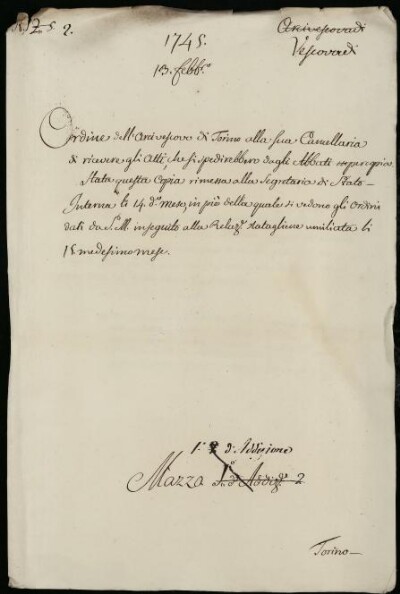 N.° 25. 2.
Arcivescovadi
Vescovadi
1745.
13. febb.°
Ordine dell'Arcivescovo di Torino alla sua Cancellaria
di ricever gli Atti, che si spedirebbero dagli Abbati
Stata questa Copia rimessa alla Segretaria di Stato
Interna li 14. d.° mese, in piè della quale si vedono gli ordini
dati da S. M. in seguito alla Relaz.e statagliene umiliata li
15 medesimo mese.
1.° d'Addizione
Mazza 1.° d'Addiz.e 2
Torino